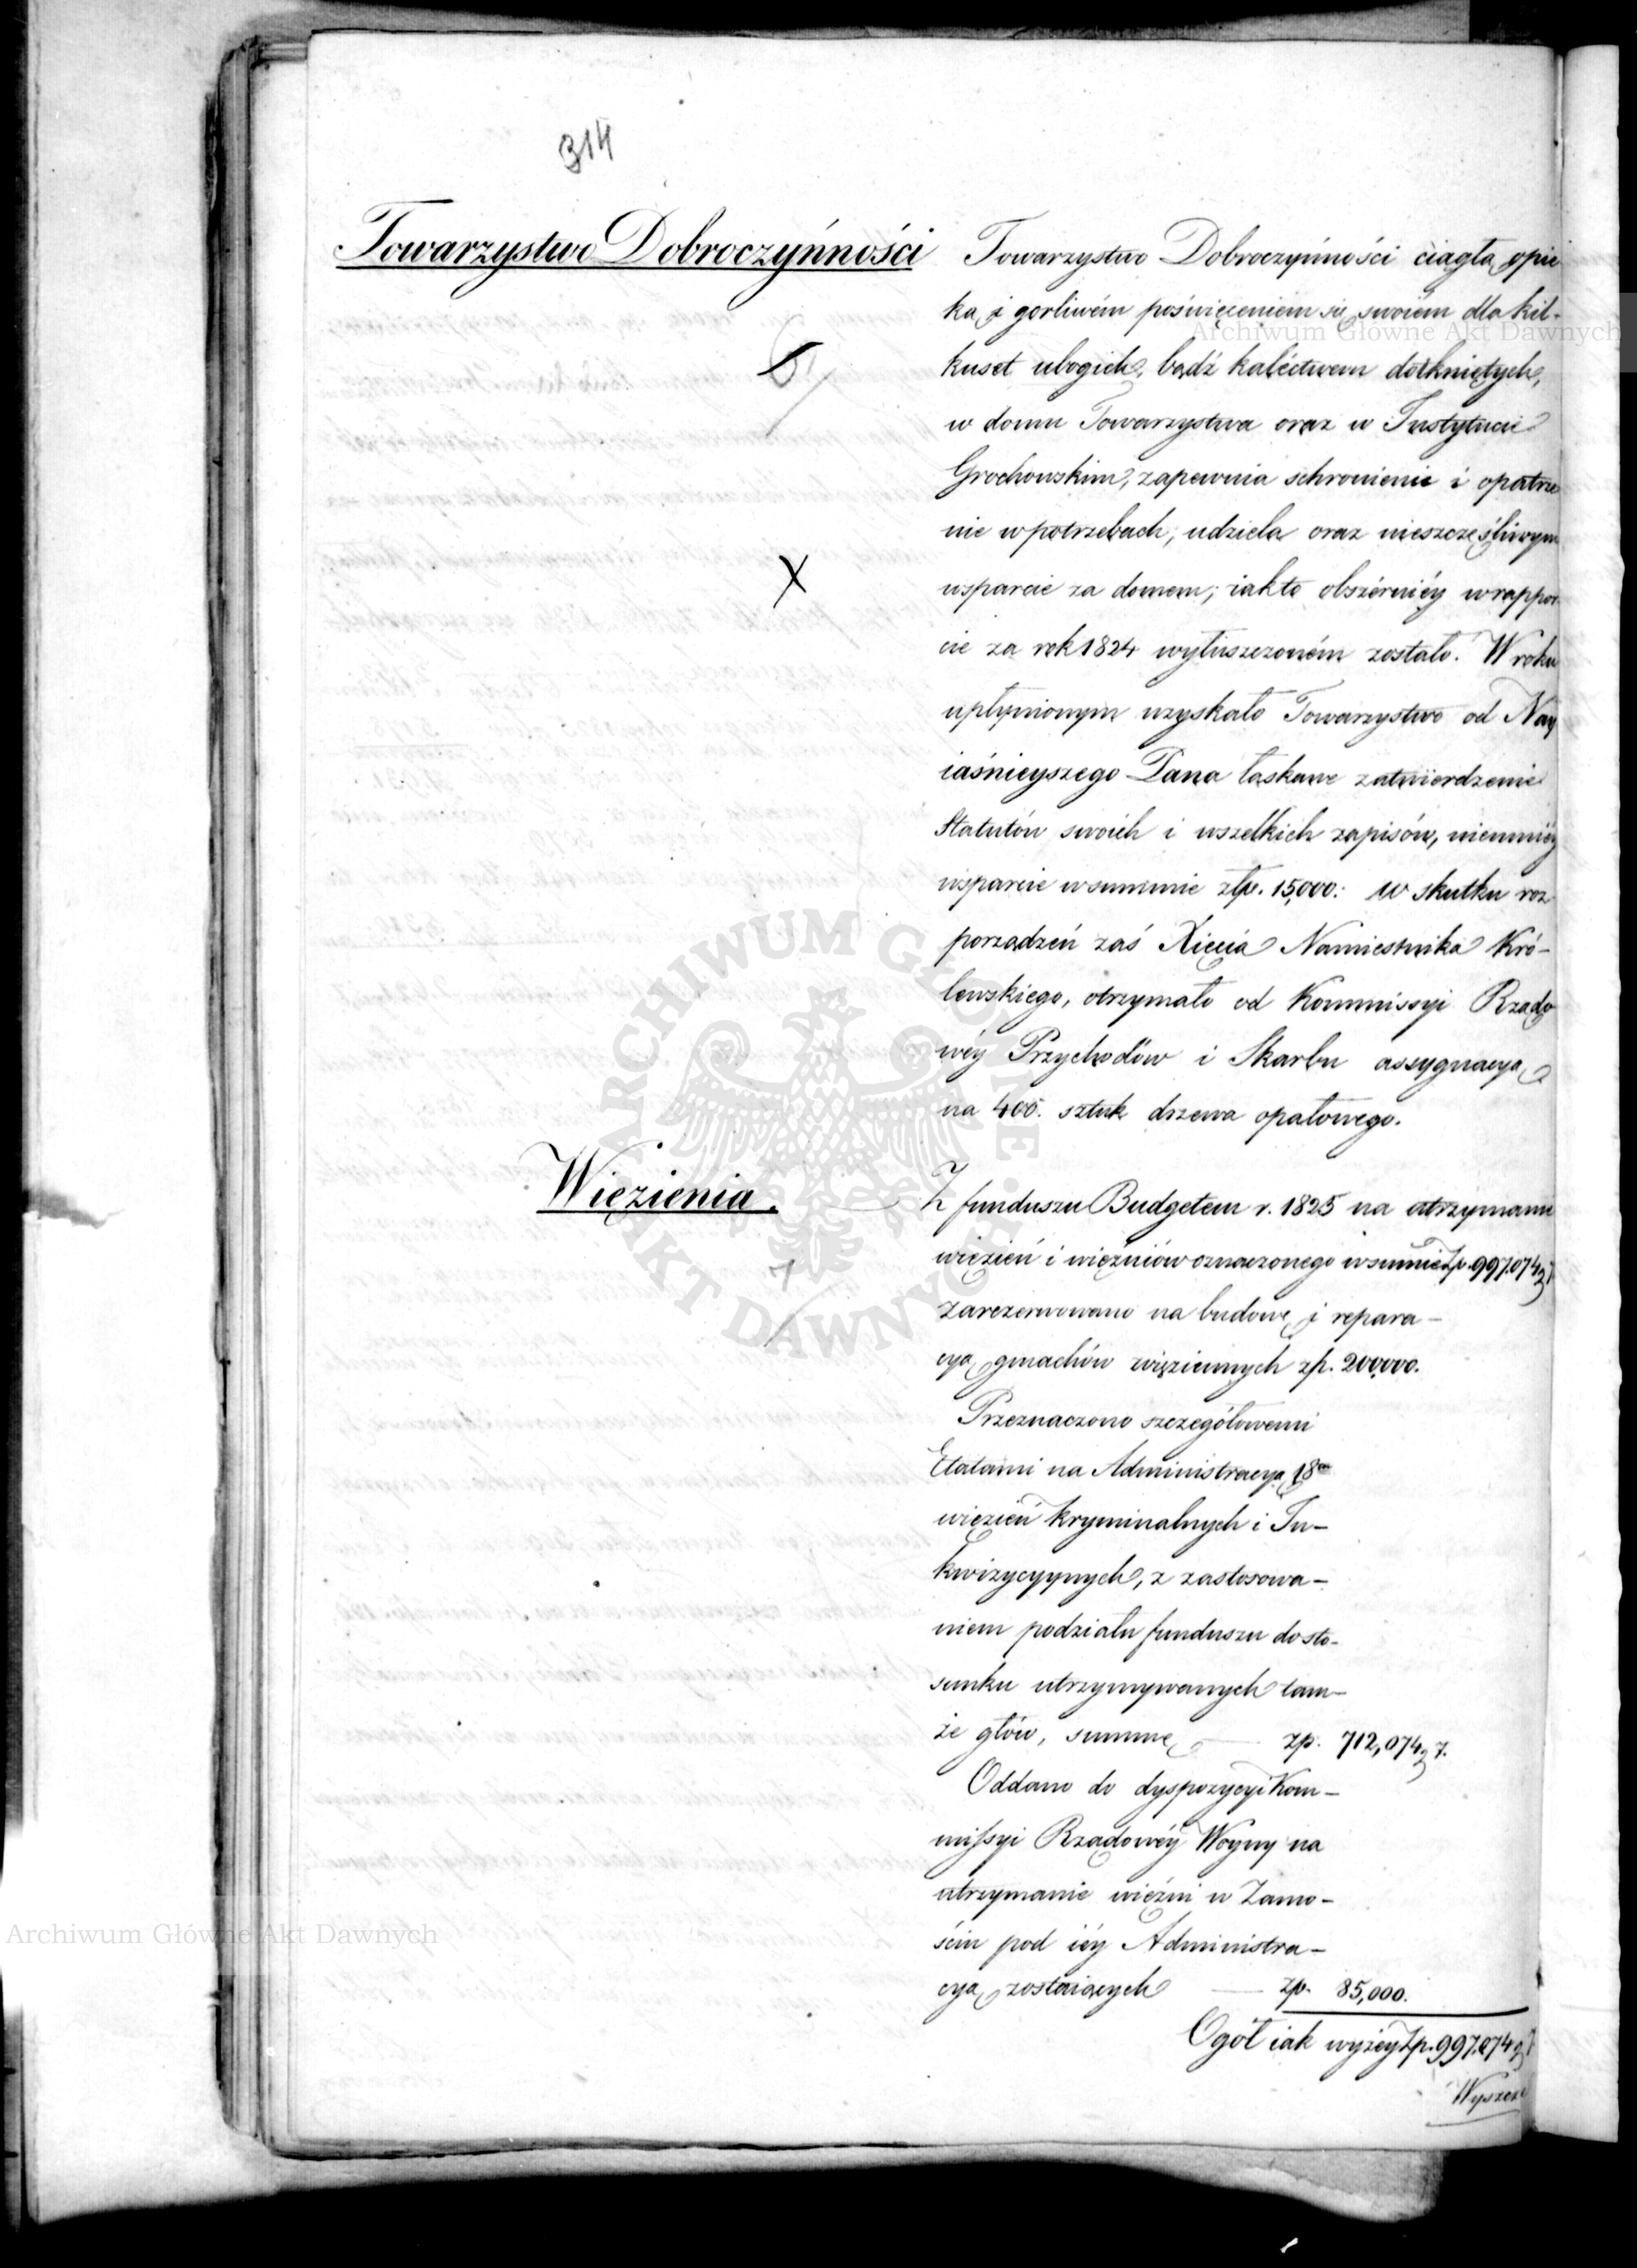 314
Towarzystwo Dobroczyńności
Towarzystwo Dobroczyńności ciągłą opie
ką i gorliwém poświęceniem się swoiém dla kil-
kuset ubogich, bądź kalectwem dotkniętych,
w domu Towarzystwa oraz w Instytucie
Grochowskim, zapewnia schronienie i opatrze
nie w potrzebach, udziela oraz nieszczęśliwym
wsparcie za domem; iak to obszérniéy w rappor
cie za rok 1824 wyłuszczoném zostało. W roku
upłynionym uzyskało Towarzystwo od Nay
iaśnieyszego Pana łaskawe zatwierdzenie
Statutów swoich i wszelkich zapisów, niemniéy
wsparcie w summie złp. 15,000: w skutku roz
porządzeń zaś Xięcia Namiestnika Kró-
lewskiego, otrzymało od Kommissyi Rządo
wéy Przychodów i Skarbu assygnacyą
na 400. sztuk drzewa opałowego.
Więzienia.
Z funduszu Budgetem r. 1825 na utrzymanie
więzień i więźniów oznaczonego w summie Zp. 997.074 g 7
zarezerwowano na budowę i repara-
cyą gmachów więziennych zp. 200,000.
Przeznaczono szczegółowemi
Etatami na Administracyą 18
więzień kryminalnych i In-
kwizycyynych, z zastosowa-
niem podziału funduszu do sto-
sunku utrzymywanych tam-
że głów, summę zp. 712,074 g 7.
Oddano do dyspozycyi Kom-
missyi Rządowéy Woyny na
utrzymanie więźni w Zamo-
ściu pod iéy Administra-
cyą zostaiących zp. 85,000.
Ogół iak wyżéy Zp. 997.074 g 7
Wyszcze
7
X
Archiwum Główne Akt Dawnych
ARCHIWUM GŁÓWNE AKT DAWNYCH
Archiwum Główne Akt Dawnych